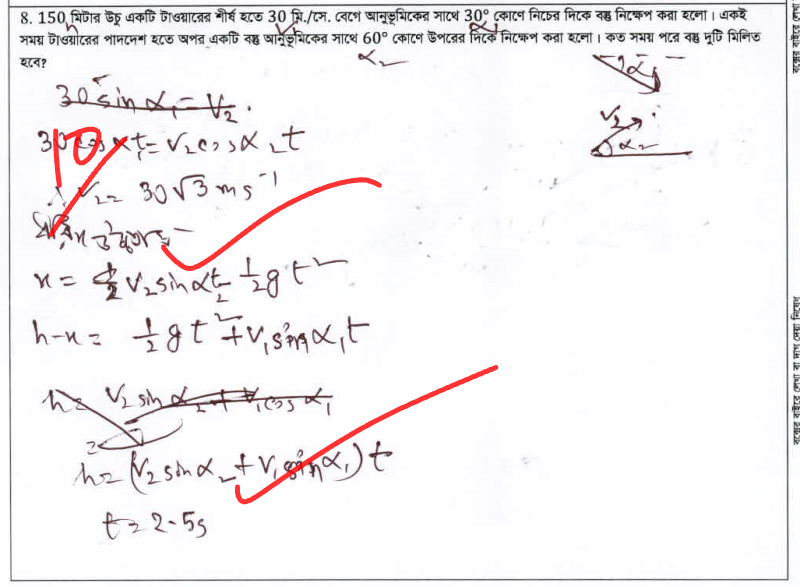 8. 150 মিটার উচু একটি টাওয়ারের শীর্ষ হতে 30 মি./সে. বেগে আনুভূমিকের সাথে 30° কোণে নিচের দিকে বস্তু নিক্ষেপ করা হলো। একই
সময় টাওয়ারের পাদদেশ হতে অপর একটি বস্তু আনুভূমিকের সাথে 60° কোণে উপরের দিকে নিক্ষেপ করা হলো। কত সময় পরে বস্তু দুটি মিলিত
হবে?
h v α₁
α₂
α₁
v₂
α₂
30 sin α₁ = v₂.
30 cos α₁t = v₂ cos α₂ t
10
v₂ = 30√3 ms⁻¹
x = v₂ sin α₂t - ½ g t²
h-x = ½ g t² + v₁ sin α₁ t
h = v₂ sin α₂ + v₁ cos α₁
h = (v₂ sin α₂ + v₁ sin α₁) t
t = 2.5s
বক্সের বাইরে লেখা বা দাগ দেয়া নিষেধ